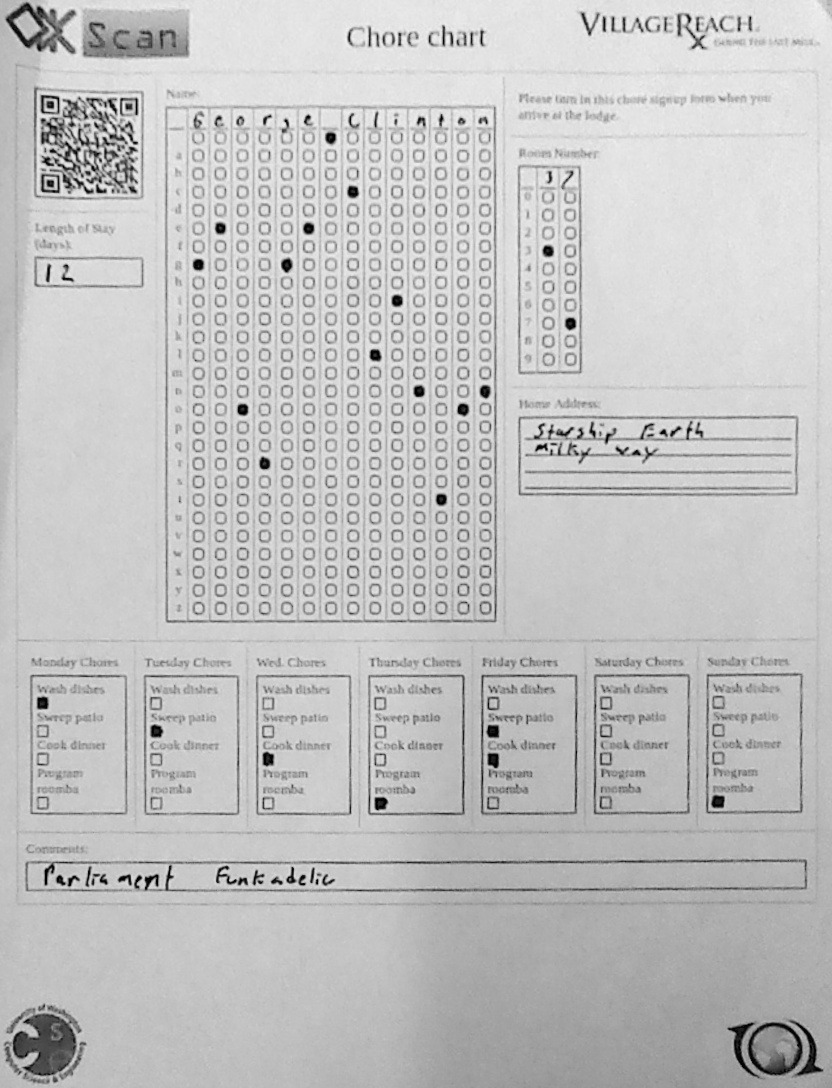 ODK Scan
Chore chart
VILLAGEREACH
Name:
G e o r g e _ C l i n t o n
a
b
c
d
e
f
g
h
i
j
k
l
m
n
o
p
q
r
s
t
u
v
w
x
y
z
Length of Stay
(days):
12
Please turn in this chore signup form when you
arrive at the lodge.
Room Number:
3 7
0
1
2
3
4
5
6
7
8
9
Home Address:
Starship Earth
Milky way
Monday Chores
Wash dishes
Sweep patio
Cook dinner
Program
roomba
Tuesday Chores
Wash dishes
Sweep patio
Cook dinner
Program
roomba
Wed. Chores
Wash dishes
Sweep patio
Cook dinner
Program
roomba
Thursday Chores
Wash dishes
Sweep patio
Cook dinner
Program
roomba
Friday Chores
Wash dishes
Sweep patio
Cook dinner
Program
roomba
Saturday Chores
Wash dishes
Sweep patio
Cook dinner
Program
roomba
Sunday Chores
Wash dishes
Sweep patio
Cook dinner
Program
roomba
Comments:
Parliament Funkadelic
University of Washington
Computer Science & Engineering